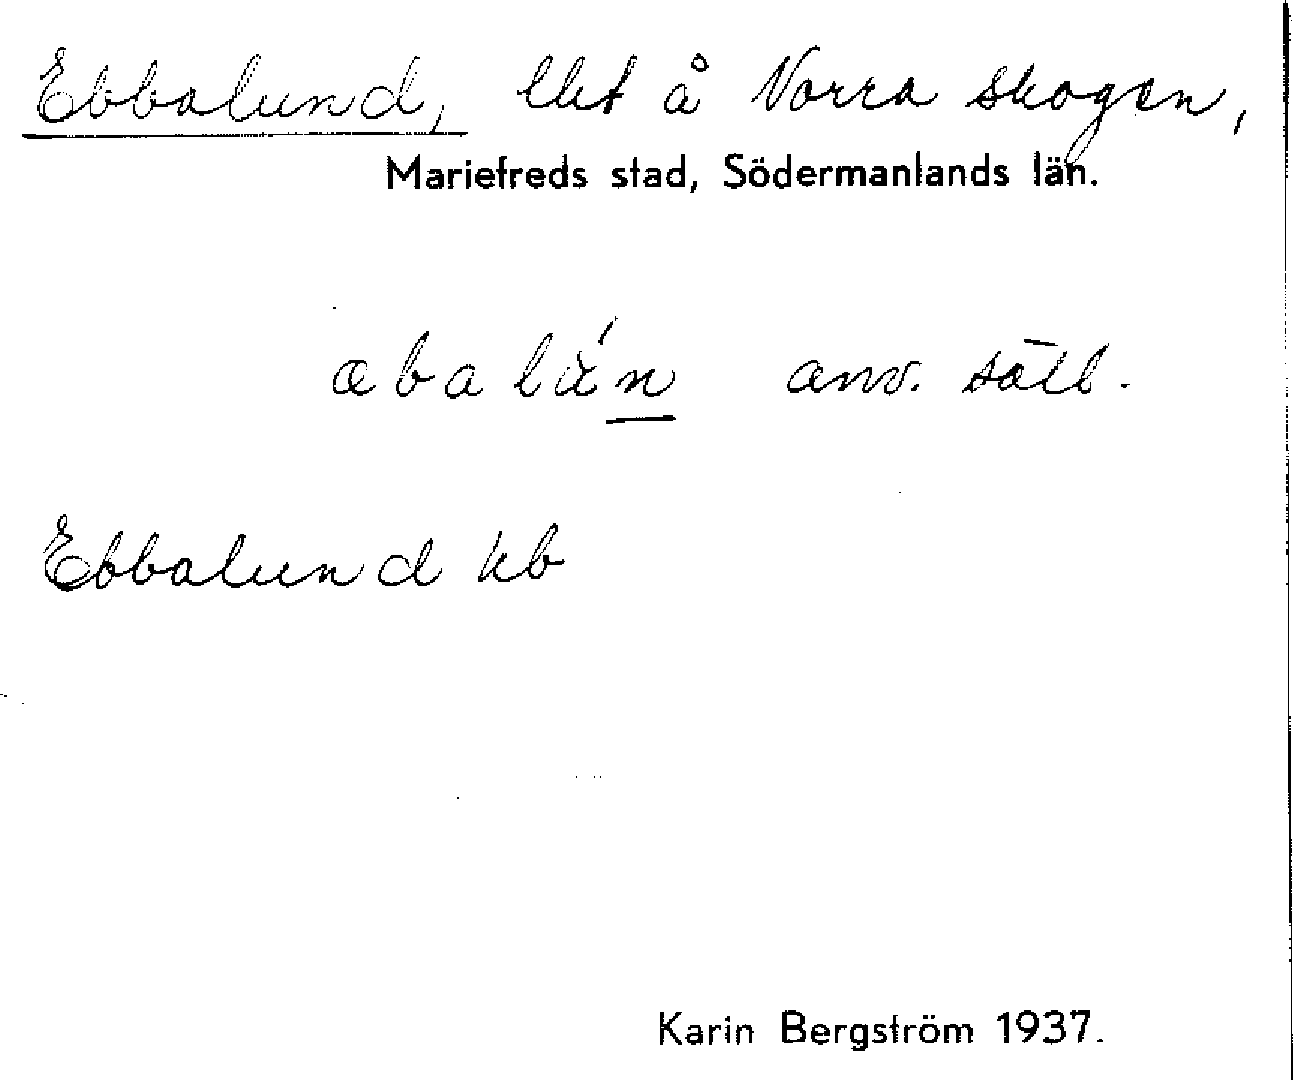 Ebbalund, lht å Norra skogen,
Mariefreds stad, Södermanlands län.
anv. säll.
Ebbalund kb
Karin Bergström 1937.